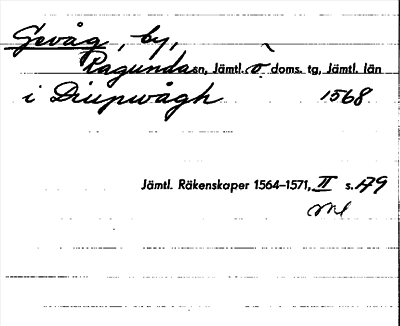 Gevåg, by,
Ragunda sn, Jämtl. ö. doms. tg, Jämtl. län
i Diupwågh 1568
Jämtl. Räkenskaper 1564–1571, II s. 179